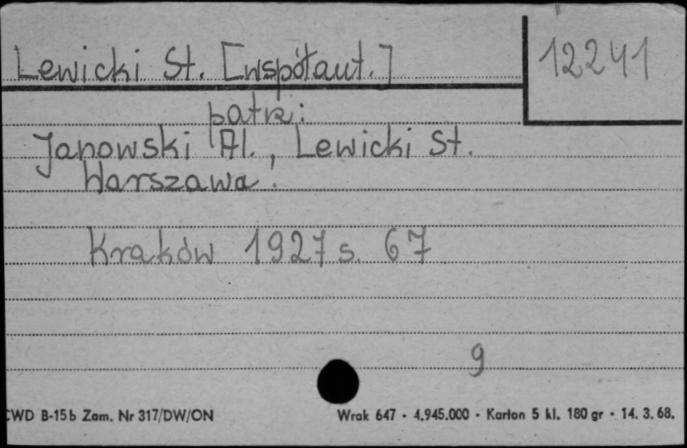 Lewicki St. [współaut.]
12241
patrz:
Janowski Al., Lewicki St.
Warszawa.
Kraków 1927 s. 67
9
CWD B-15b Zam. Nr 317/DW/ON
Wrak 647 - 4.945.000 - Karton 5 kl. 180 gr - 14. 3. 68.